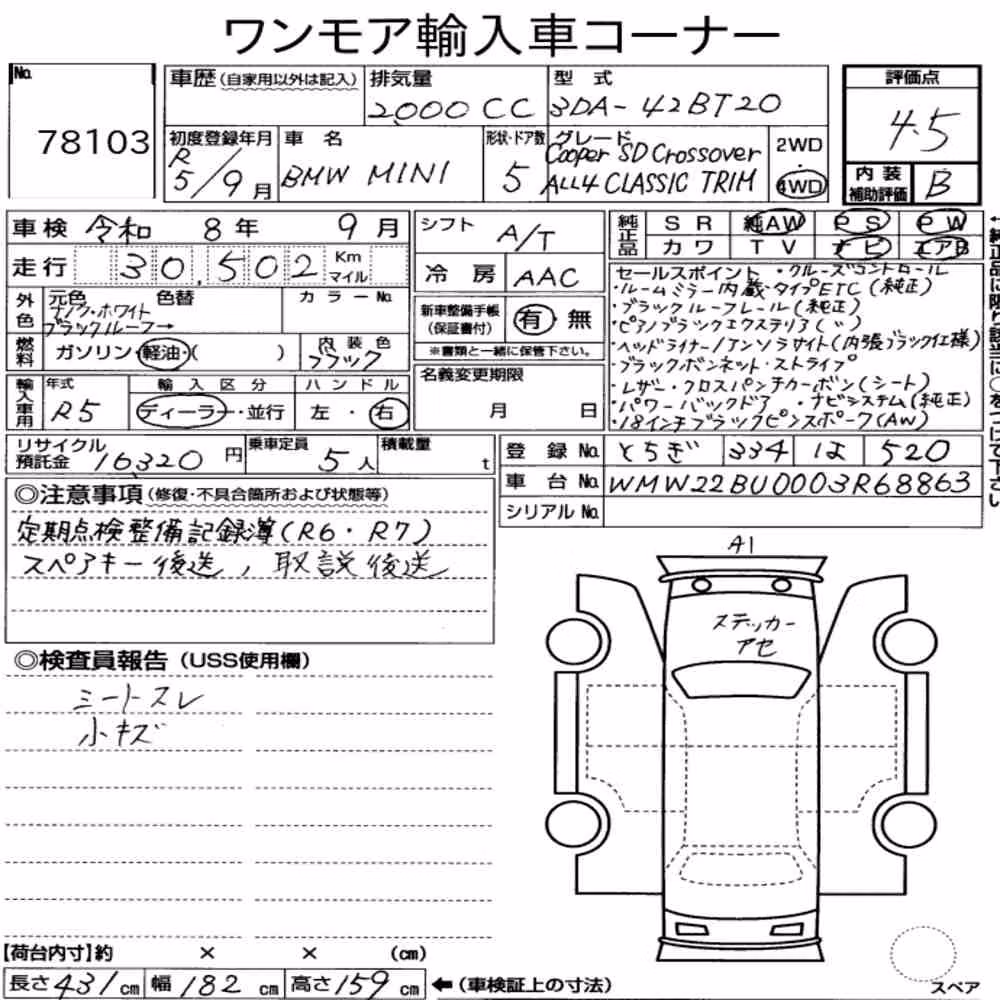 ワンモア輸入車コーナー
No. 78103
車歴 (自家用以外は記入)
排気量 2000 CC
型式 3DA-42BT20
評価点 4.5
初度登録年月 R5/9月
車名 BMW MINI
形状・ドア数 5
グレード Cooper SD Crossover
ALL4 CLASSIC TRIM
2WD
・
4WD
内装補助評価 B
車検 令和 8年 9月
走行 30,502 Km マイル
シフト A/T
冷房 AAC
純正品 SR 純AW PS PW
カワ TV ナビ エアB
←純正品に限り該当に○をつけて下さい
外色 元色 色替 カラーNo.
ナノク・ホワイト
ブラックルーフ→
燃料 ガソリン・軽油・( )
内装色 ブラック
新車整備手帳 (保証書付) 有・無
※書類と一緒に保管下さい。
名義変更期限 月 日
セールスポイント ・クルーズコントロール
・ルームミラー内蔵・タイプETC(純正)
・ブラックルーフレール(純正)
・ピアノブラックエクステリア(〃)
・ヘッドライナー/アンソラサイト(内張ブラック仕様)
・ブラックボンネット・ストライプ
・レザー・クロスパンチカーボン(シート)
・パワーバックドア ・ナビシステム(純正)
・18インチブラックピンスポーク(AW)
輸入車用 年式 R5
輸入区分 ディーラー・並行
ハンドル 左・右
リサイクル預託金 16320円
乗車定員 5人
積載量 t
登録No. とちぎ 334 は 520
車台No. WMW22BU0003R68863
シリアルNo.
◎注意事項 (修復・不具合箇所および状態等)
定期点検整備記録簿(R6・R7)
スペアキー後送, 取説後送
◎検査員報告 (USS使用欄)
シートスレ
小キズ
A1
ステッカー
アセ
【荷台内寸】約 × × (cm)
長さ431cm 幅182cm 高さ159cm ←(車検証上の寸法)
スペア